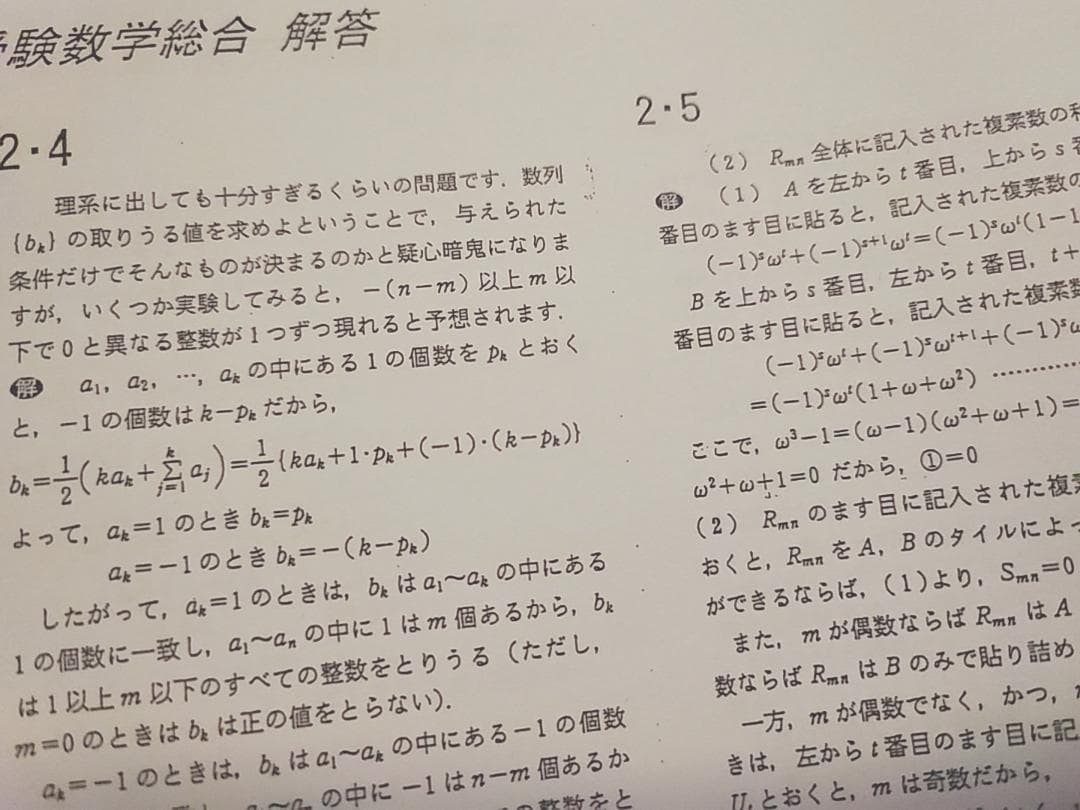 験数学総合 解答
2・4
理系に出しても十分すぎるくらいの問題です．数列
{bₖ} の取りうる値を求めよということで，与えられた
条件だけでそんなものが決まるのかと疑心暗鬼になりま
すが，いくつか実験してみると，−(n−m) 以上 m 以
下で 0 と異なる整数が 1 つずつ現れると予想されます．
解 a₁，a₂，…，aₖ の中にある 1 の個数を pₖ とおく
と，−1 の個数は k−pₖ だから，
bₖ=1/2(kaₖ+Σ[j=1→k]aⱼ)=1/2{kaₖ+1·pₖ+(−1)·(k−pₖ)}
よって，aₖ=1 のとき bₖ=pₖ
aₖ=−1 のとき bₖ=−(k−pₖ)
したがって，aₖ=1 のときは，bₖ は a₁〜aₖ の中にある
1 の個数に一致し，a₁〜aₙ の中に 1 は m 個あるから，bₖ
は 1 以上 m 以下のすべての整数をとりうる（ただし，
m=0 のときは bₖ は正の値をとらない）．
aₖ=−1 のときは，bₖ は a₁〜aₖ の中にある −1 の個数
a₁〜aₙ の中に −1 は n−m 個あるか
の整数をと
2・5
（2） Rₘₙ 全体に記入された複素数の
解 （1） A を左から t 番目，上から s 番
番目のます目に貼ると，記入された複素数の
(−1)ˢωᵗ+(−1)ˢ⁺¹ωᵗ=(−1)ˢωᵗ(1−1
B を上から s 番目，左から t 番目，t+
番目のます目に貼ると，記入された複素数
(−1)ˢωᵗ+(−1)ˢωᵗ⁺¹+(−1)ˢω
=(−1)ˢωᵗ(1+ω+ω²) …………
ここで，ω³−1=(ω−1)(ω²+ω+1)=
ω²+ω+1=0 だから，①=0
（2） Rₘₙ のます目に記入された複素
おくと，Rₘₙ を A，B のタイルによっ
ができるならば，(1)より，Sₘₙ=0
また，m が偶数ならば Rₘₙ は A
数ならば Rₘₙ は B のみで貼り詰め
一方，m が偶数でなく，かつ，
きは，左から t 番目のます目に記
Uₜ とおくと，m は奇数だから，